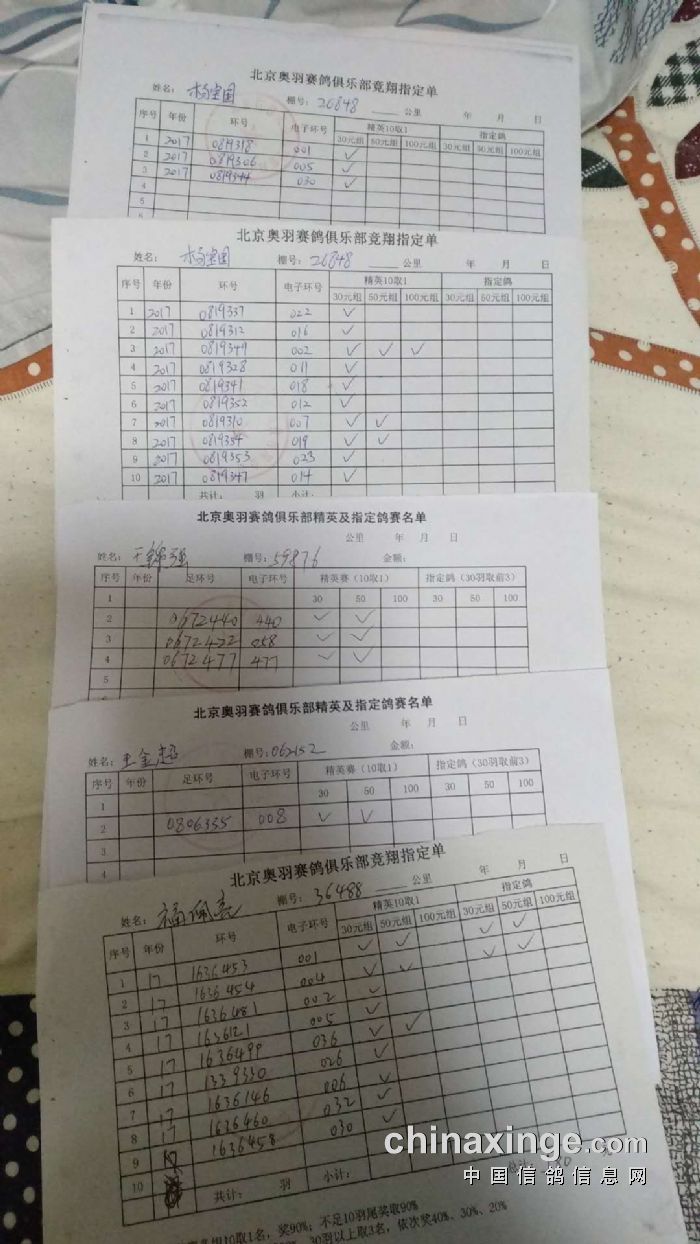 北京奥羽赛鸽俱乐部竞翔指定单
姓名: 棚号: 26848 公里 年 月 日
序号 年份 环号 电子环号 精英10取1 指定鸽
30元组 50元组 100元组 30元组 50元组 100元组
1 2017 0819318 001 ✓
2 2017 0819306 005 ✓
3 2017 0819344 030 ✓
4
5
北京奥羽赛鸽俱乐部竞翔指定单
姓名: 棚号: 26848 公里 年 月 日
序号 年份 环号 电子环号 精英10取1 指定鸽
30元组 50元组 100元组 30元组 50元组 100元组
1 2017 0819337 022 ✓
2 2017 0819312 016 ✓
3 2017 0819349 002 ✓ ✓ ✓
4 2017 0819328 011 ✓
5 2017 0819341 018 ✓
6 2017 0819352 012 ✓
7 2017 0819310 007 ✓ ✓
8 2017 0819354 019 ✓ ✓
9 2017 0819353 023 ✓
10 2017 0819347 014 ✓
共计: 羽 小计:
北京奥羽赛鸽俱乐部精英及指定鸽赛名单
公里 年 月 日
姓名: 王锦强 棚号: 59876 金额:
序号 年份 足环号 电子环号 精英赛(10取1) 指定鸽(30羽取前3)
1 30 50 100 30 50 100
2 0672440 440 ✓ ✓
3 0672422 058 ✓ ✓
4 0672477 477 ✓ ✓
5
北京奥羽赛鸽俱乐部精英及指定鸽赛名单
公里 年 月 日
姓名: 王金超 棚号: 062152 金额:
序号 年份 足环号 电子环号 精英赛(10取1) 指定鸽(30羽取前3)
30 50 100 30 50 100
1
2 0806335 008 ✓ ✓
3
4
北京奥羽赛鸽俱乐部竞翔指定单
姓名: 棚号: 36488 公里 年 月 日
序号 年份 环号 电子环号 精英10取1 指定鸽
30元组 50元组 100元组 30元组 50元组 100元组
1 17 1636453 001 ✓ ✓ ✓ ✓
2 17 1636454 004 ✓ ✓ ✓ ✓
3 17 1636481 002 ✓
4 17 1636121 005 ✓ ✓
5 17 1636499 036 ✓
6 17 1339330 026
7 17 1636146 006 ✓
8 17 1636460 032 ✓
9 17 1636458 030 ✓
10
共计: 羽 小计:
10取1名, 奖90%; 不足10羽尾奖取90%
30羽以上取3名, 依次奖40%、30%、20%
chinaxinge.com
中国信鸽信息网